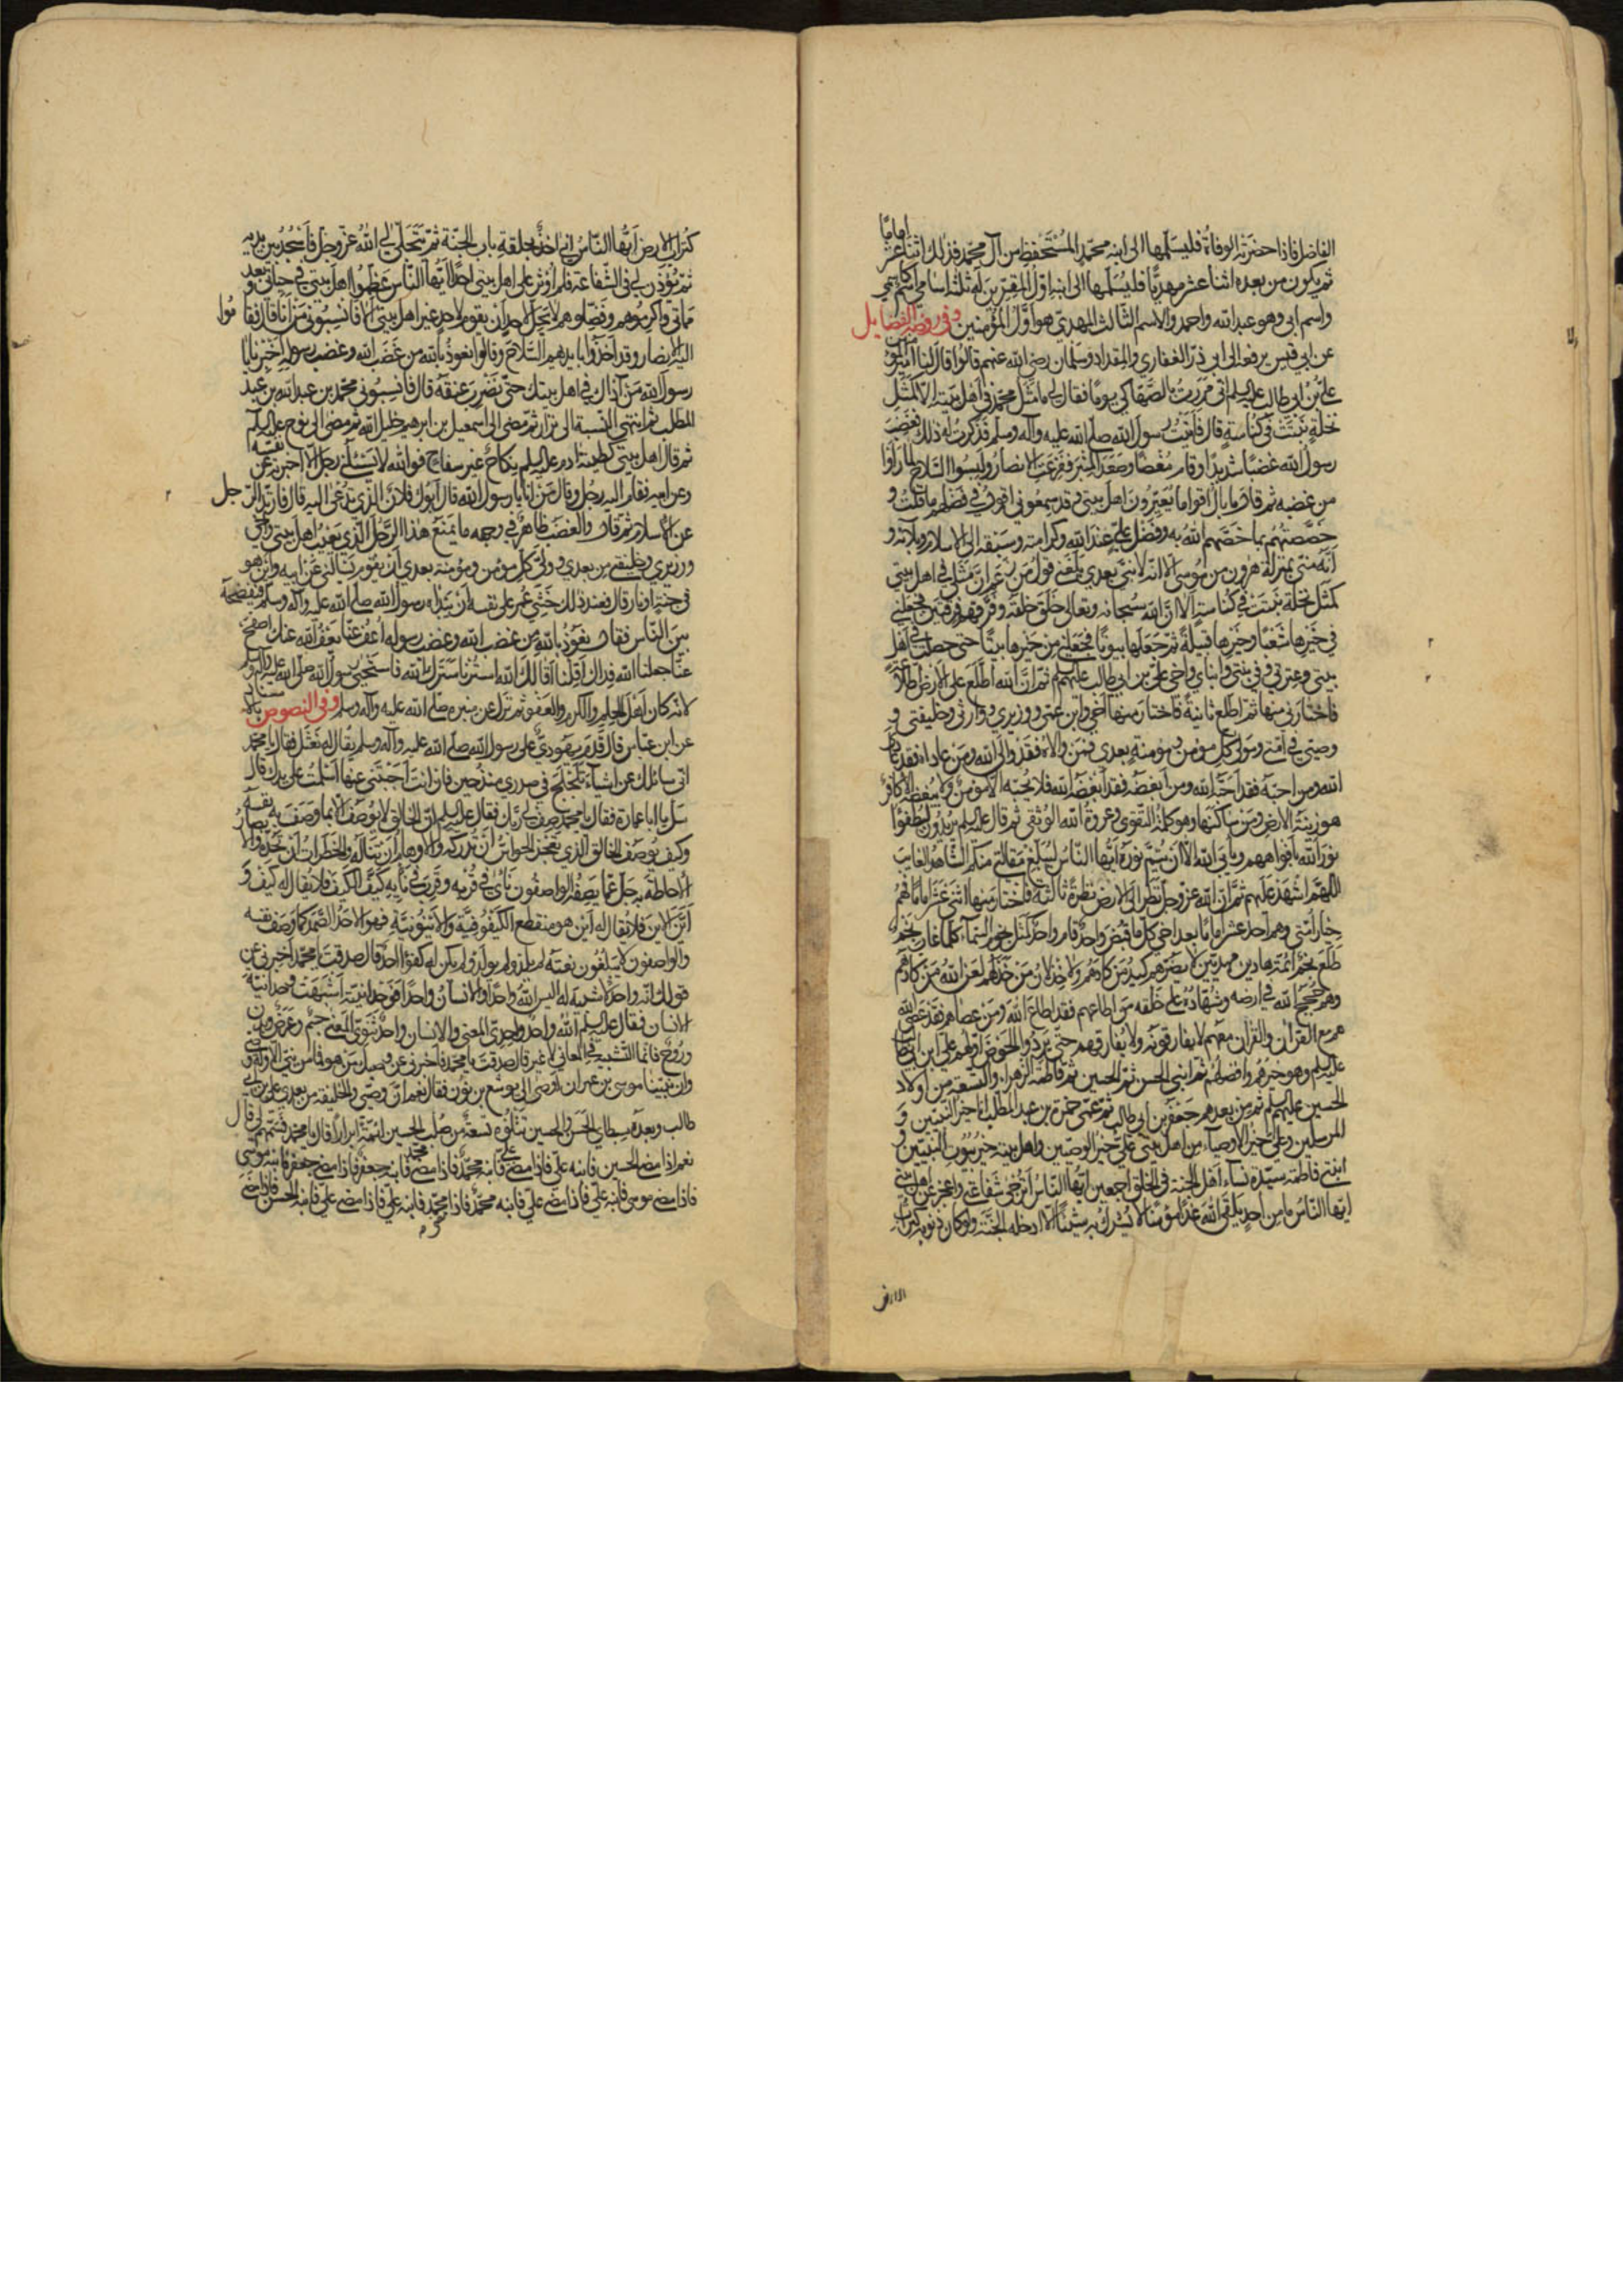 الفاضل فاذا حضرته الوفاة فليسلمها الى ابنه محمد المستحفظ من آل محمد فذلك اثنا عشر اماما
ثم يكون من بعده اثنا عشر مهديا فليسلمها الى ابنه اول المقربين له ثلثة اسامي اسم كاسمي
واسم ابي وهو عبد الله واحمد والاسم الثالث المهدي هو اول المؤمنين وفي روضة الفضايل
عن ابي قيس يرفعه الى ابي ذر الغفاري والمقداد وسلمان رضي الله عنهم قالوا قال لنا امير المؤمنين
علي بن ابي طالب عليه السلم اني مررت بالصهاكي يوما فقال لي ما مثل محمد في اهل بيته الا كمثل
نخلة نبتت في كناسة قال فاتيت رسول الله صلى الله عليه وآله وسلم فذكرت له ذلك فغضب
رسول الله غضبا شديدا وقام مغضبا وصعد المنبر ففزعت الانصار ولبسوا السلاح لما راوا
من غضبه ثم قال ما بال اقوام يعيرون اهل بيتي وقد سمعوني اقول في فضلهم ما قلت و
خصصتهم بما خصهم الله به وفضل علي عند الله وكرامته وسبقه الى الاسلام وبلاءه و
انه مني بمنزلة هرون من موسى الا انه لا نبي بعدي بلغني قول من زعم ان مثلي في اهل بيتي
كمثل نخلة نبتت في كناسة الا ان الله سبحانه وتعالى خلق خلقه وفرقهم فرقتين فجعلني
في خيرها شعبا وخيرها قبيلة ثم جعلها بيوتا فجعلني من خيرها بيتا حتى حصلت في اهل
بيتي وعترتي وفي بنتي وابناي واخي علي بن ابي طالب عليهم السلم ثم ان الله اطلع على الارض اطلاعة
فاختارني منها ثم اطلع ثانية فاختار منها اخي وابن عمي ووزيري ووارثي وخليفتي و
وصيي في امتي ومولى كل مؤمن ومؤمنة بعدي فمن والاه فقد والى الله ومن عاداه فقد عادى
الله ومن احبه فقد احبه الله ومن ابغضه فقد ابغضه الله فلا يحبه الا مؤمن ولا يبغضه الا كافر
هو زينة الارض ومن ساكنها وهو كلمة التقوى وعروة الله الوثقى ثم قال عليه السلم يريدون ليطفؤا
نور الله بافواههم ويابى الله الا ان يتم نوره ايها الناس ليبلغ مقالتي منكم الشاهد الغايب
اللهم اشهد عليهم ثم ان الله عز وجل نظر الى الارض نظرة ثالثة فاختار منها اثني عشر اماما فهم
خيار امتي وهم احد عشر اماما بعد اخي كل ما قبض واحد قام واحد كمثل نجوم السماء كلما غاب نجم
طلع نجم ائمة هادين مهديين لا يضرهم كيد من كادهم ولا خذلان من خذلهم لعن الله من كادهم
وهم حجج الله في ارضه وشهداؤه على خلقه من اطاعهم فقد اطاع الله ومن عصاهم فقد عصى الله
هم مع القرآن والقرآن معهم لا يفارقونه ولا يفارقهم حتى يردوا الحوض اولهم علي ابن ابي طالب
عليه السلم وهو خيرهم وافضلهم ثم ابني الحسن ثم الحسين ثم فاطمة الزهراء والتسعة من اولاد
الحسين عليهم السلم ثم من بعدهم جعفر بن ابي طالب ثم عمي حمزة بن عبد المطلب انا خير النبيين و
المرسلين وعلي خير الاوصياء من اهل بيتي علي خير الوصيين واهل بيته خير بيوت النبيين و
ابنتي فاطمة سيدة نساء اهل الجنة في الخلق اجمعين ايها الناس اترجى شفاعتي واعجز عن اهل بيتي
ايها الناس ما من احد يلقى الله غدا مؤمنا لا يشرك به شيئا الا ادخله الجنة ولو كان ذنوبه كتراب
الارض
كتراب الارض ايها الناس اني آخذ بحلقة باب الجنة ثم يتجلى لي الله عز وجل فاسجد بين يديه
ثم يؤذن لي في الشفاعة فلم اوثر على اهل بيتي احدا ايها الناس عظموا اهل بيتي في حياتي وبعد
مماتي واكرموهم وفضلوهم لا يحل لاحد ان يقوم لاحد غير اهل بيتي الا فانسبوني من انا قال فقاموا
اليه الانصار وقد اخذوا بايديهم السلاح وقالوا نعوذ بالله من غضب الله وغضب رسوله اخبرنا يا
رسول الله من آذاك في اهل بيتك حتى نضرب عنقه قال فانسبوني محمد بن عبد الله بن عبد
المطلب ثم انتهى النسبة الى نزار ثم مضى الى اسمعيل بن ابرهيم خليل الله ثم مضى الى نوح عليه السلم
ثم قال اهل بيتي كطينة ادم عليه السلم نكاح غير سفاح فوالله لا يسئلني رجل الا اخبرته عن نفسه
وعن ابيه فقام اليه رجل وقال من انا يا رسول الله قال ابوك فلان الذي تدعى اليه قال فارتد الرجل
عن الاسلام ثم قال والغضب ظاهر في وجهه ما يمنع هذا الرجل الذي يعيب اهل بيتي واخي
ووزيري وخليفتي من بعدي وولي كل مؤمن ومؤمنة بعدي ان يقوم يسالني عن ابيه واين هو
في جنة او نار قال فعند ذلك خشي عمر على نفسه ان يبداه رسول الله صلى الله عليه وآله وسلم فيفضحه
بين الناس فقال نعوذ بالله من غضب الله وغضب رسوله اعف عنا يعف الله عنك اصفح
عنا جعلنا الله فداك اقلنا اقالك الله استرنا سترك الله فاستحيى رسول الله صلى الله عليه وآله وسلم
لانه كان اهل الحلم والكرم والعفو ثم نزل عن منبره صلى الله عليه وآله وسلم وفي النصوص
عن ابن عباس قال قدم يهودي على رسول الله صلى الله عليه وآله وسلم يقال له نعثل فقال يا محمد
اني سائلك عن اشياء تلجلج في صدري منذ حين فان انت اجبتني عنها اسلمت على يدك قال
سل يا ابا عمارة فقال يا محمد صف لي ربك فقال عليه السلم ان الخالق لا يوصف الا بما وصف به نفسه
وكيف يوصف الخالق الذي تعجز الحواس ان تدركه والاوهام ان تناله والخطرات ان تحده والابصار
الاحاطة به جل عما يصفه الواصفون نائ في قربه وقرب في نايه كيف الكيف فلا يقال له كيف و
اين الاين فلا يقال له اين هو منقطع الكيفوفية والاينونية فهو الاحد الصمد كما وصف نفسه
والواصفون لا يبلغون نعته لم يلد ولم يولد ولم يكن له كفوا احد قال صدقت يا محمد اخبرني عن
قولك انه واحد لا شبيه له اليس الله واحدا والانسان واحدا فوحدانيته اشبهت وحدانية
الانسان فقال عليه السلم الله واحد واحدي المعنى والانسان واحد ثنوي المعنى جسم وعرض وبدن
وروح فانما التشبيه في المعاني لا غير قال صدقت يا محمد فاخبرني عن وصيك من هو فما من نبي الا وله وصي
وان نبينا موسى بن عمران اوصى الى يوشع بن نون فقال نعم ان وصيي والخليفة من بعدي علي بن ابي
طالب وبعده سبطاي الحسن والحسين تتلوه تسعة من صلب الحسين ائمة ابرارا قال يا محمد فسمهم لي قال
نعم اذا مضى الحسين فابنه علي فاذا مضى علي فابنه محمد فاذا مضى محمد فابنه جعفر فاذا مضى جعفر فابنه موسى
فاذا مضى موسى فابنه علي فاذا مضى علي فابنه محمد فاذا محمد فابنه علي فاذا مضى علي فابنه الحسن فاذا مضى